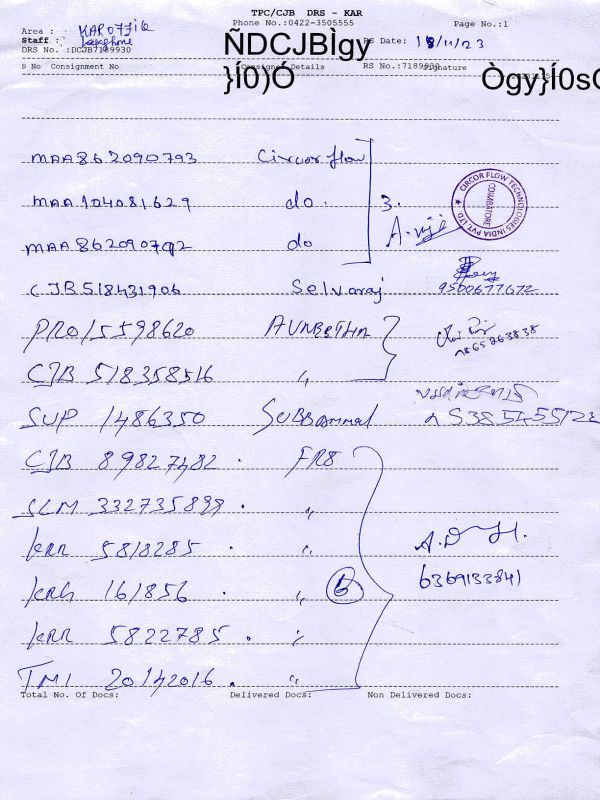 TPC/CJB DRS - KAR
Phone No.:0422-3505555 Page No.:1
Area : KAROFFIC
Staff :
DRS No. :DCJB7189930 DRS Date: 18/11/23
ÑDCJBÌgy
S No Consignment No Consignee Details RS No.:7189930 Signature
}Í0)Ó Ògy}Í0sO
MAA862090793 Circor flow
MAA104081629 do. 3.
CIRCOR FLOW TECHNOLOGIES INDIA PVT LTD. COIMBATORE
MAA862090792 do
CJB518431906 Selvaraj 9500677672
PRO15598620
CJB 518358516 "
SUP 1486350 Subbammal
CJB 89827482 · FR8
SLM 332735899 · "
KRR 5818285 · "
KRG 161856 " 6 6369133841
KRR 5822785 · "
TMI 20142016 · "
Total No. Of Docs: Delivered Docs: Non Delivered Docs: